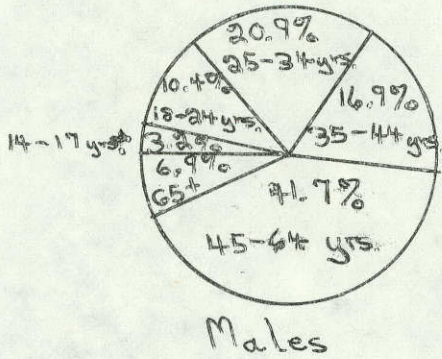 20.9%
25-34 yrs.
10.4%
18-24 yrs.
16.9%
35-44 yrs
14-17 yrs.
3.2%
6.9%
65+
41.7%
45-64 yrs.
Males